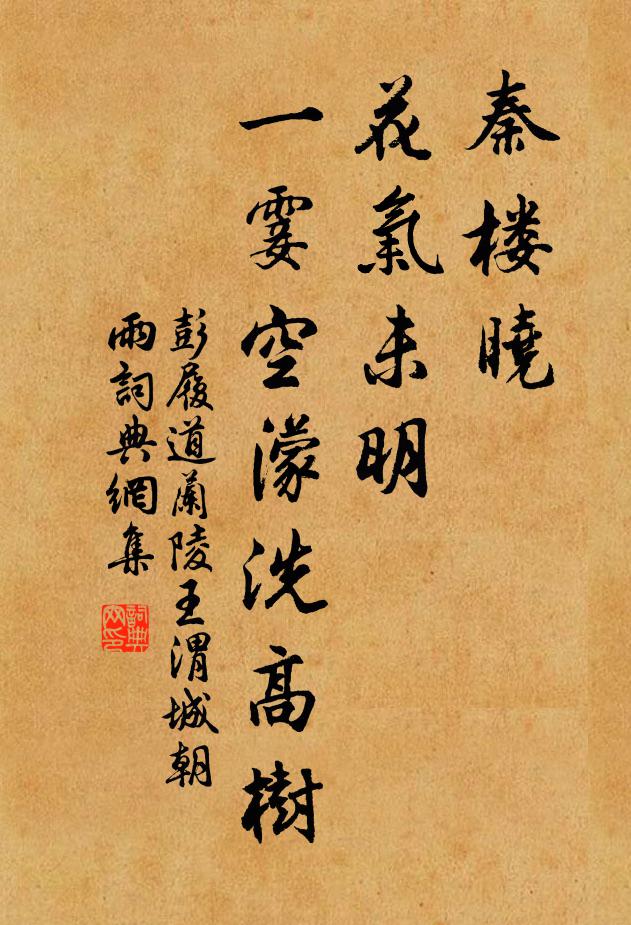 秦楼曉
花氣未明
一霎空濛洗高樹
彭履道蘭陵王渭城朝
雨詞典網集
詞典网印